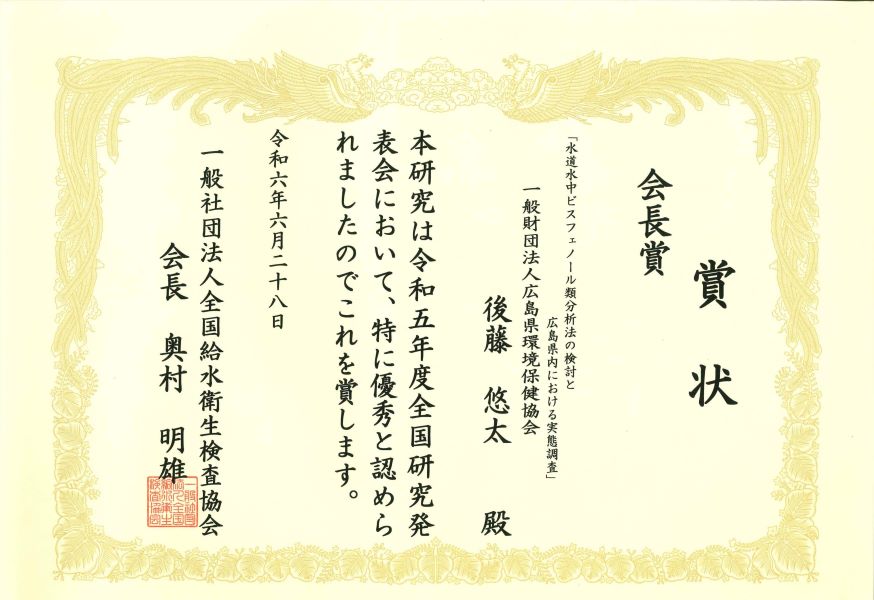 賞状
会長賞
「水道水中ビスフェノール類分析法の検討と
広島県内における実態調査」
一般財団法人広島県環境保健協会
後藤 悠太 殿
本研究は令和五年度全国研究発
表会において、特に優秀と認めら
れましたのでこれを賞します。
令和六年六月二十八日
一般社団法人全国給水衛生検査協会
会長 奥村 明雄